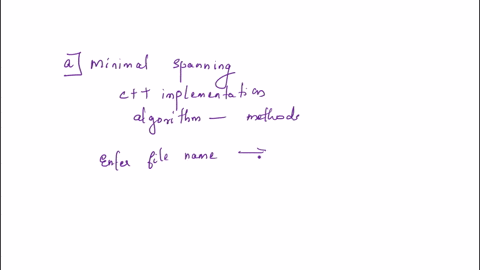 a] Minimal spanning
c++ implementation
algorithm — methods
Enter file name →